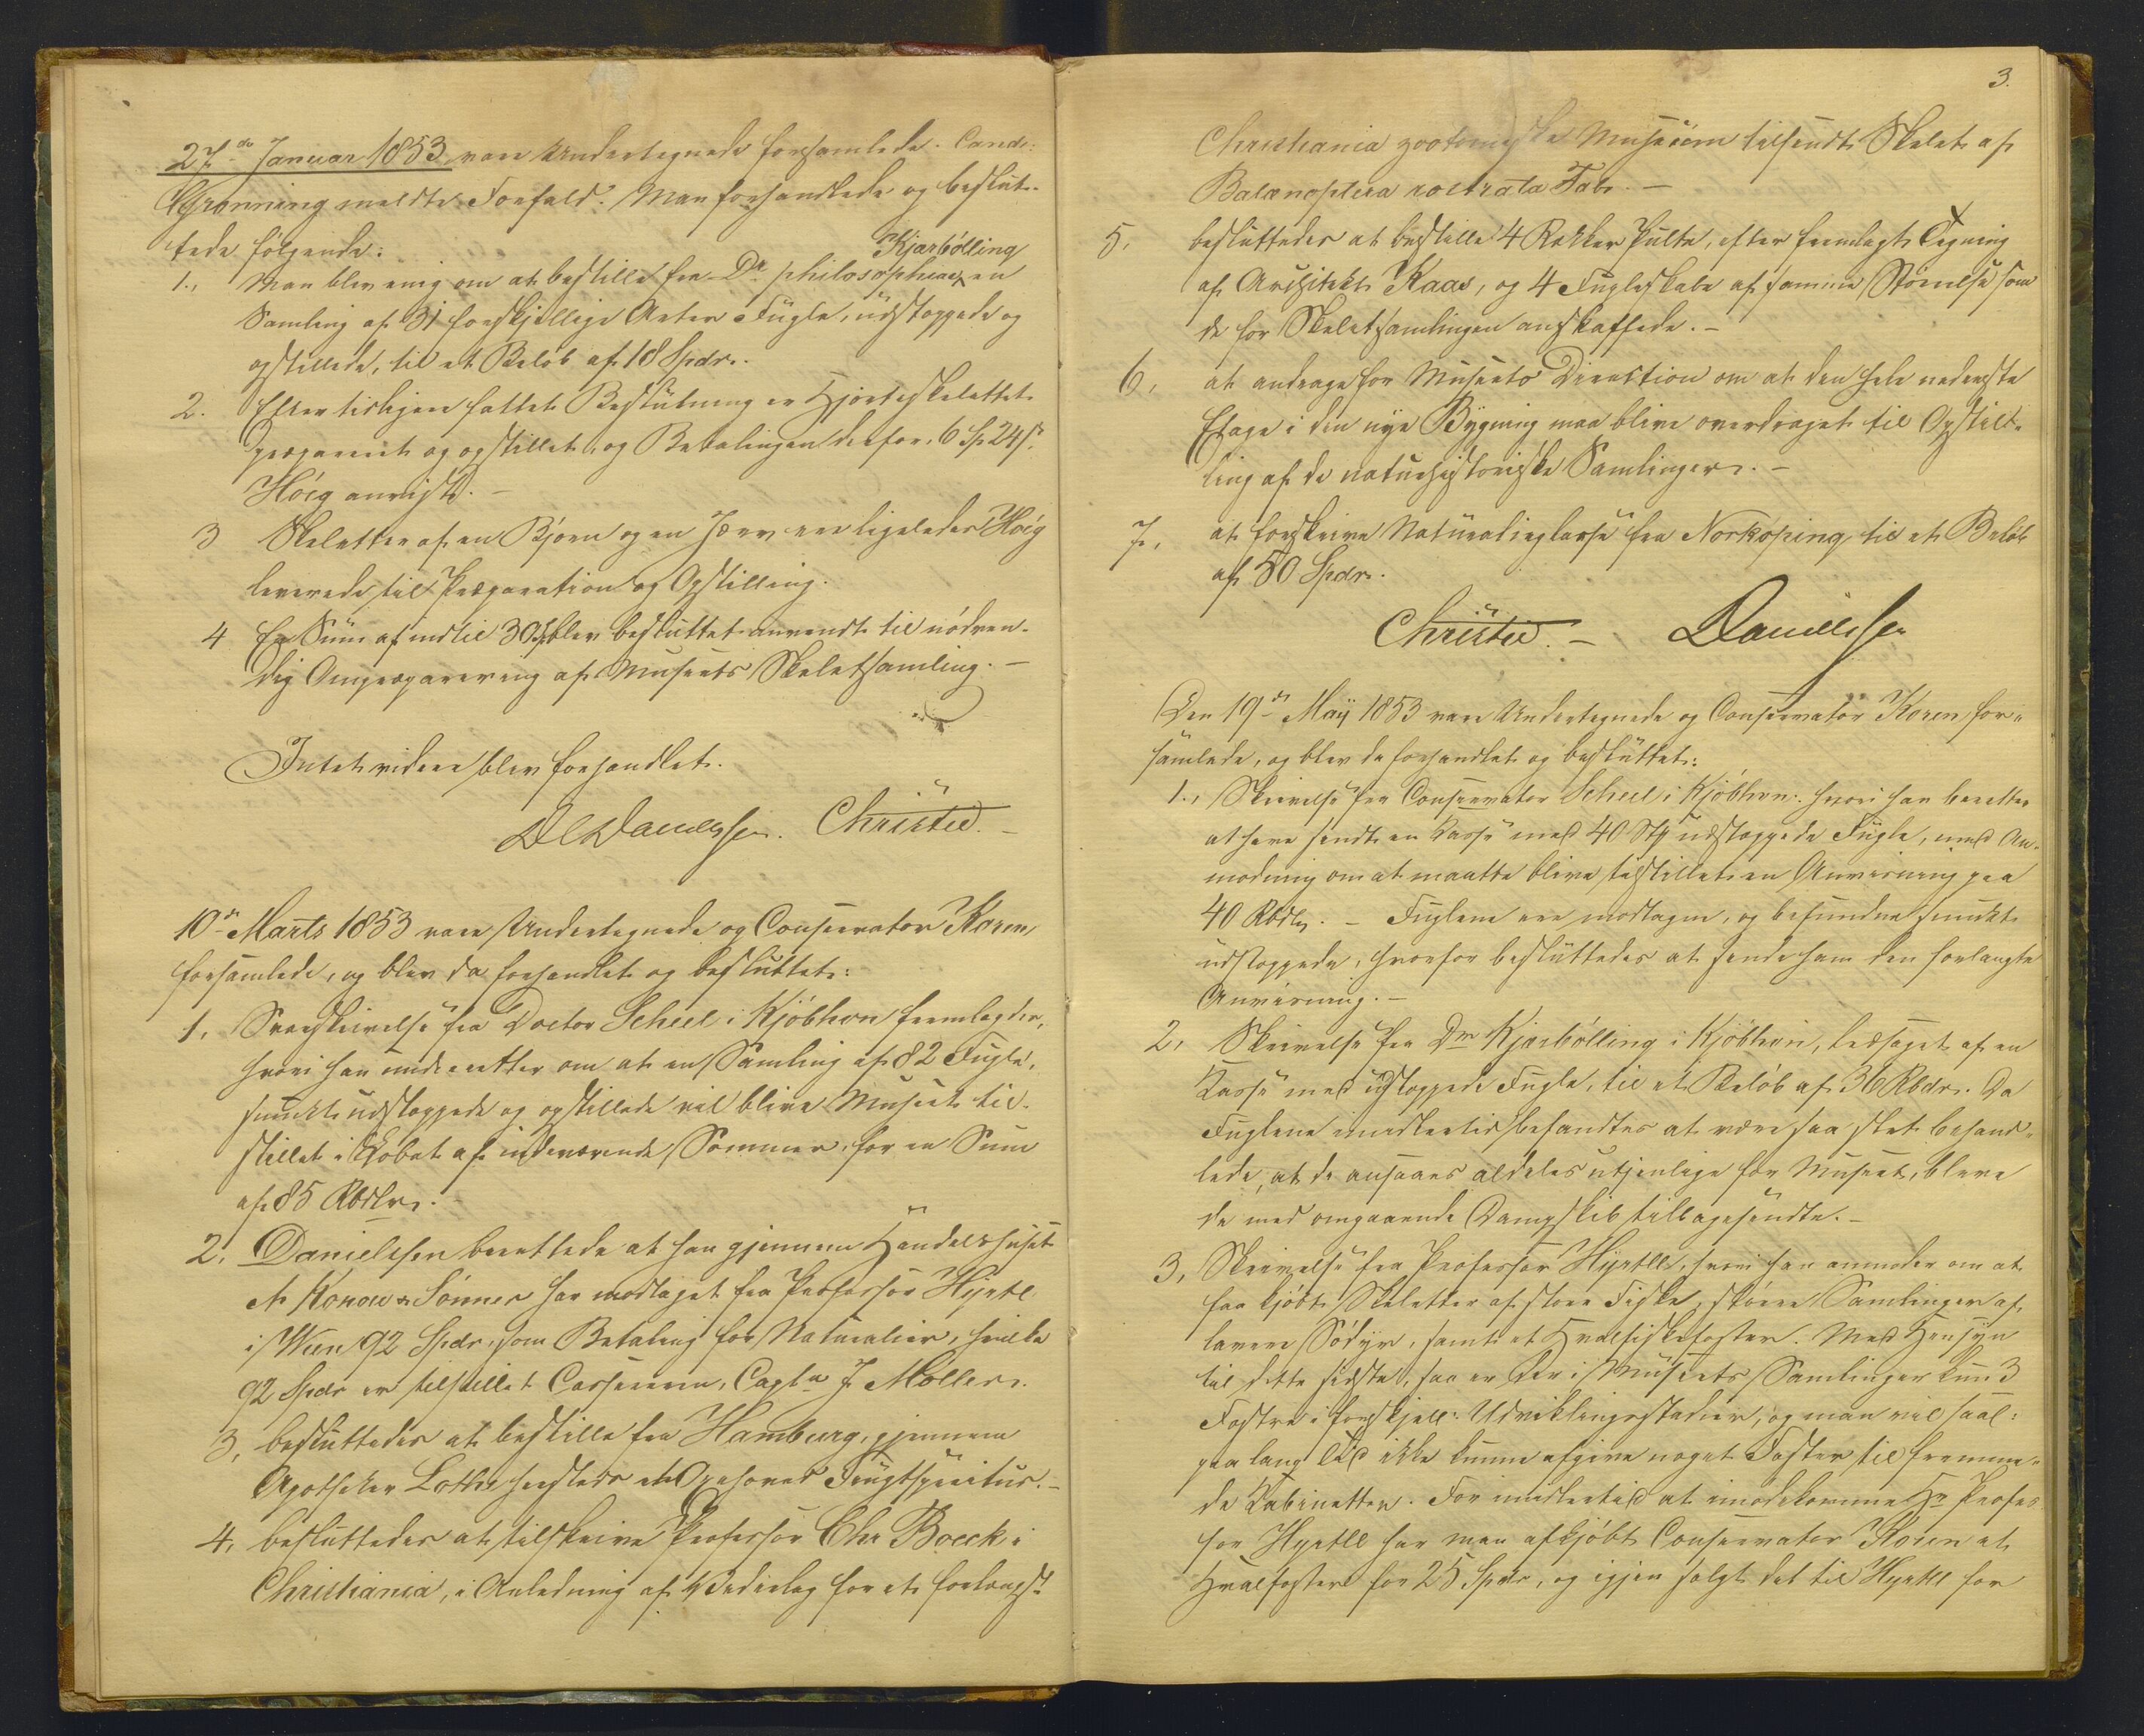 27de Januar 1853 vare Undertegnede forsamlede. Cand:
Grønning meldte Forfald. Man forhandlede og beslut-
tede følgende:
Kjærbölling
1., Man blev enig om at bestille fra Dr. philosophiae en
Samling af 31 forskjellige Arter Fugle, udstoppede og
opstillede, til et Beløb af 18 Spdr.
2. Efter tidligere fattet Beslutning er Hjorteskelettet
præpareret og opstillet, og Betalingen derfor, 6 Sp 24 s
Höeg anvist. –
3 Skeletter af en Bjørn og en Jærv ere ligeledes Höeg
leverede til Præparation og Opstilling.
4 En Sum af indtil 30 Sp blev besluttet anvendt til nödven-
dig Ompræparering af Museets Skeletsamling. –
Intet videre blev forhandlet.
DC Danielssen. Christie. –
10de Marts 1853 vare Undertegnede og Conservator Koren
forsamlede, og blev da forhandlet og besluttet:
1, Svarskrivelse fra Doctor Scheel i Kjöbhvn fremlagdes,
hvori han underretter om at en Samling af 82 Fugle,
smukt udstoppede og opstillede vil blive Museet til-
stillet i Løbet af indeværende Sommer, for en Sum
af 85 Rbdlr.
2, Danielssen berettede at han gjennem Handelshuset
A Konow & Sönner har modtaget fra Professor Hyrtl
i Wien 92 Spdr. som Betaling for Naturalier, hvilke
92 Spdr er tilstillet Cassereren, Captn J Möller.
3, besluttedes at bestille fra Hamburg, gjennem
Apotheker Lothe et Oxehoved Frugtspiritus. –
4, besluttedes at tilskrive Professor Chr Boeck i
Christiania, i Anledning af Vederlag for et forlængst
3.
Christiania zootomiske Museum tilsendt Skelet af
Balænoptera rostrata Fabr. –
5, besluttedes at bestille 4 Rækker Pulte, efter fremlagt Tegning
af Architekt Kaas, og 4 Fugleskabe af samme Størrelse som
de for Skeletsamlingen anskaffede. –
6, at andrage for Museets Direction om at den hele nederste
Etage i den nye Bygning maa blive overdraget til Opstil-
ling af de naturhistoriske Samlinger. –
7, at forskrive Naturalieglasse fra Norköping til et Beløb
af 50 Spdr.
Christie. – Danielssen
Den 19de Maÿ 1853 vare Undertegnede og Conservator Koren for-
samlede, og blev da forhandlet og besluttet:
1., Skrivelse fra Conservator Scheel i Kjöbhvn. hvori han beretter
at have sendt en Kasse med 40 Stk udstoppede Fugle, med An-
modning om at maatte blive tilstillet en Anvisning paa
40 Rbdlr. – Fuglene ere modtagne, og befundne smukt
udstoppede, hvorfor besluttedes at sende ham den forlangte
Anvisning. –
2, Skrivelse fra Dr Kjærbölling i Kjöbhvn, ledsaget af en
Kasse med udstoppede Fugle, til et Beløb af 36 Rbdr. Da
Fuglene imidlertid befandtes at være saa slet behand-
lede, at de ansaaes aldeles utjenlige for Museet, bleve
de med omgaaende Dampskib tilbagesendte. –
3, Skrivelse fra Professor Hyrtll, hvori han anmoder om at
faa kjöbt Skeletter af store Fiske, större Samlinger af
lavere Södyr, samt et Hvalfiskefoster. Med Hensyn
til dette sidste, saa er der i Museets Samlinger kun 3
Fostre i forskjell: Udviklingsstadier, og man vil saal:
paa lang Tid ikke kunne afgive noget Foster til fremme-
de Kabinetter. For imidlertid at imødekomme Hr Profes-
sor Hyrtll har man afkjöbt Conservator Koren et
Hvalfoster for 25 Spdr, og igjen solgt det til Hyrtll for